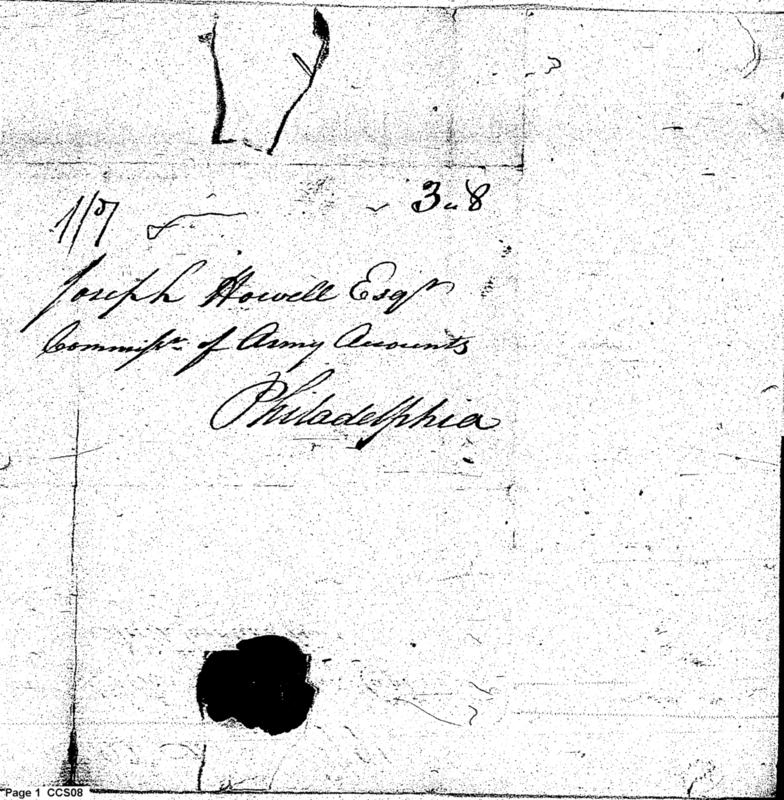 3 „ 8
1/7
Joseph Howell Esqr
Commissr. of Army Accounts
Philadelphia
Page 1 CCS08